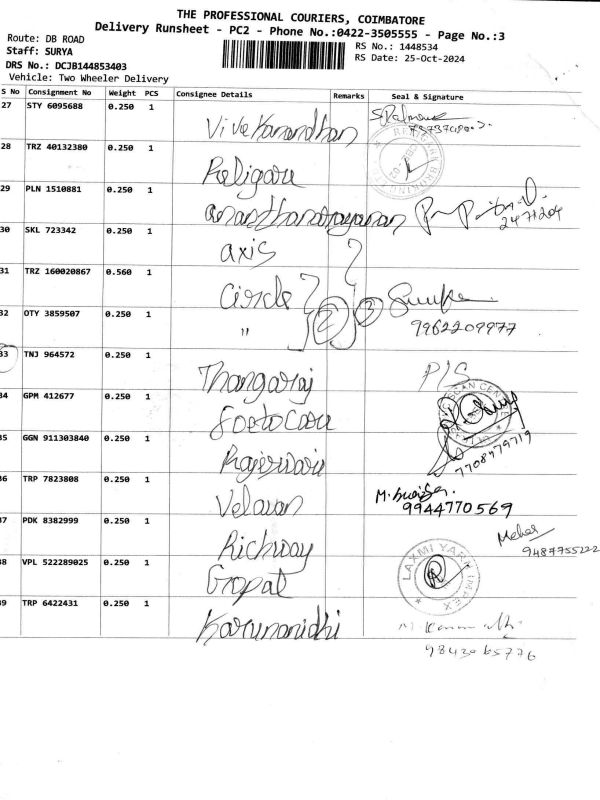 THE PROFESSIONAL COURIERS, COIMBATORE
Delivery Runsheet - PC2 - Phone No.:0422-3505555 - Page No.:3
Route: DB ROAD
RS No.: 1448534
Staff: SURYA
RS Date: 25-Oct-2024
DRS No.: DCJB144853403
Vehicle: Two Wheeler Delivery
S No Consignment No Weight PCS Consignee Details Remarks Seal & Signature
27 STY 6095688 0.250 1 Vivekanandhan
28 TRZ 40132380 0.250 1 Religare
29 PLN 1510881 0.250 1 Ananthanarayanan
30 SKL 723342 0.250 1 axis
31 TRZ 160020867 0.560 1 Circle
2 3
32 OTY 3859507 0.250 1 "
9962209977
33 TNJ 964572 0.250 1 Thangaraj P/S
34 GPM 412677 0.250 1
SCAN CENTRE
35 GGN 911303840 0.250 1 Rajeswari
7708979719
36 TRP 7823808 0.250 1 Velavan
9944770569
37 PDK 8382999 0.250 1 Richway
Meher
9487755222
38 VPL 522289025 0.250 1 Gopal
LAXMI YARN IMPEX
39 TRP 6422431 0.250 1 Karunanidhi
9843065776